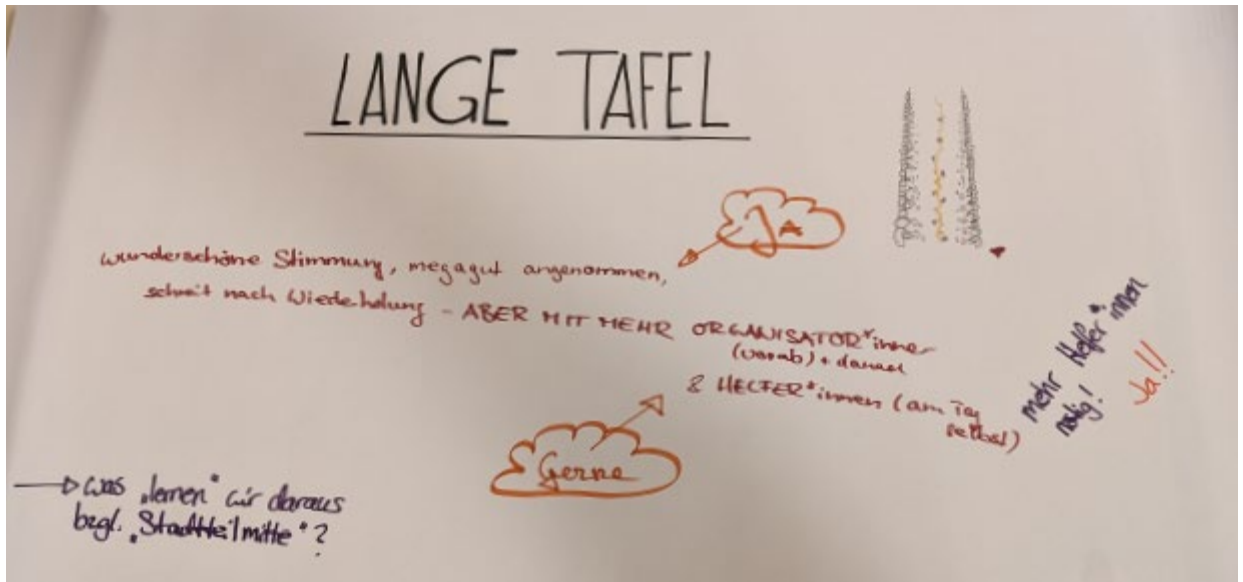 LANGE TAFEL
Ja
wunderschöne Stimmung, megagut angenommen,
schreit nach Wiederholung - ABER MIT MEHR ORGANISATOR*innen
(vorab) + danach
& HELFER*innen (am Tag
selbst)
mehr Helfer*innen
nötig!
Ja!!
Gerne
→ was „lernen" wir daraus
bzgl. „Stadtteilmitte"?